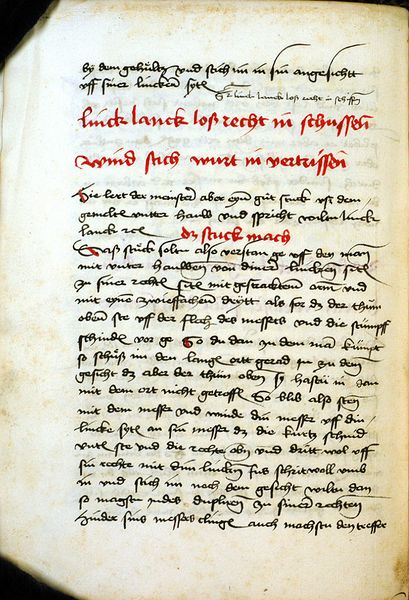 by dem gehültz vnd stich im in sin angesichtt
vff siner lincken sytt
linck lanck loß recht in schiessen
linck lanck loß recht in schussen
wind stich wurt in vertrissen
Hie lert der meinster aber eyn gůt stuck vß dem
vnter hauw vnd spricht wiltu linck
lanck das stuck mach
Daß stuck soltu also verstan ge vff den man
mit vnter hauwen von diner lincken sitt
zu siner rechten sitt mit gestracktem arm vnd
mit eyne zwieffachem dritt als ser dz der thům
oben ste vff der flech des messers vnd die stumpff
schnide vor ge So du dan zu dem man kumpt
so schüß im den lange ortt gerad in zu dem
gesicht dz aber der thum oben ist hastu in dan
mit dem ort nicht getroffen So blib also sten
mit dem messer vnd winde din messer vff din
lincke sytt an sin messer dz die kurtz schnid
vnten ste vnd die rechte oben vnd dritt wol vff
sin rechte mit dim lincken fus schrit woll vmb
in vnd stich im noch dem gesicht wiltu dan
so magstu indes duplieren zu siner rechten
hinder sins messers clinge auch machstu den treffer